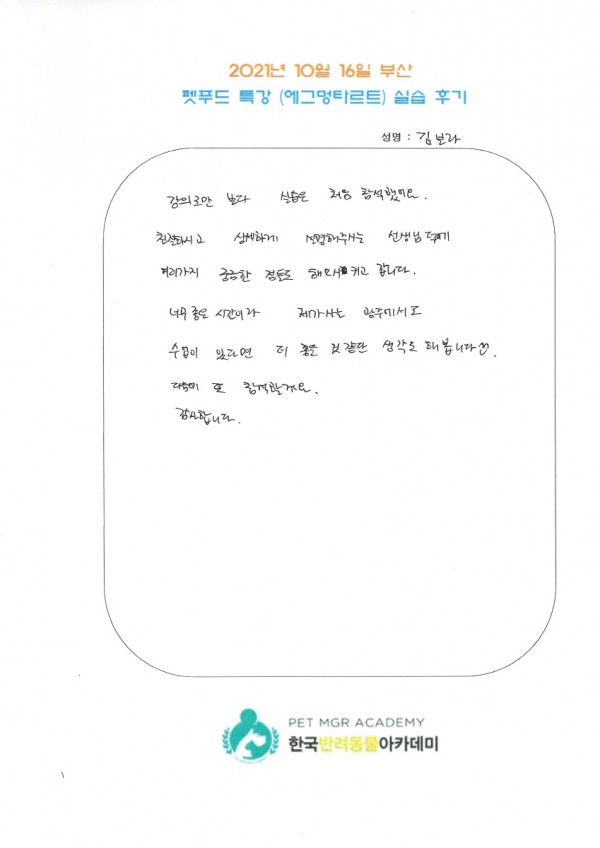 2021년 10월 16일 부산
펫푸드 특강 (에그멍타르트) 실습 후기
성명 : 김보라
강의로만 보다 실습은 처음 참석했어요.
친절하시고 상세하게 설명해주시는 선생님덕에
여러가지 궁금한 점들도 해소 키고 합니다.
너무 좋은 시간이라 제가사는 광주에서도
수업이 있다면 더 좋을 것 같단 생각도 해봅니다♡.
다음에 또 참석할게요.
감사합니다.
PET MGR ACADEMY
한국반려동물아카데미